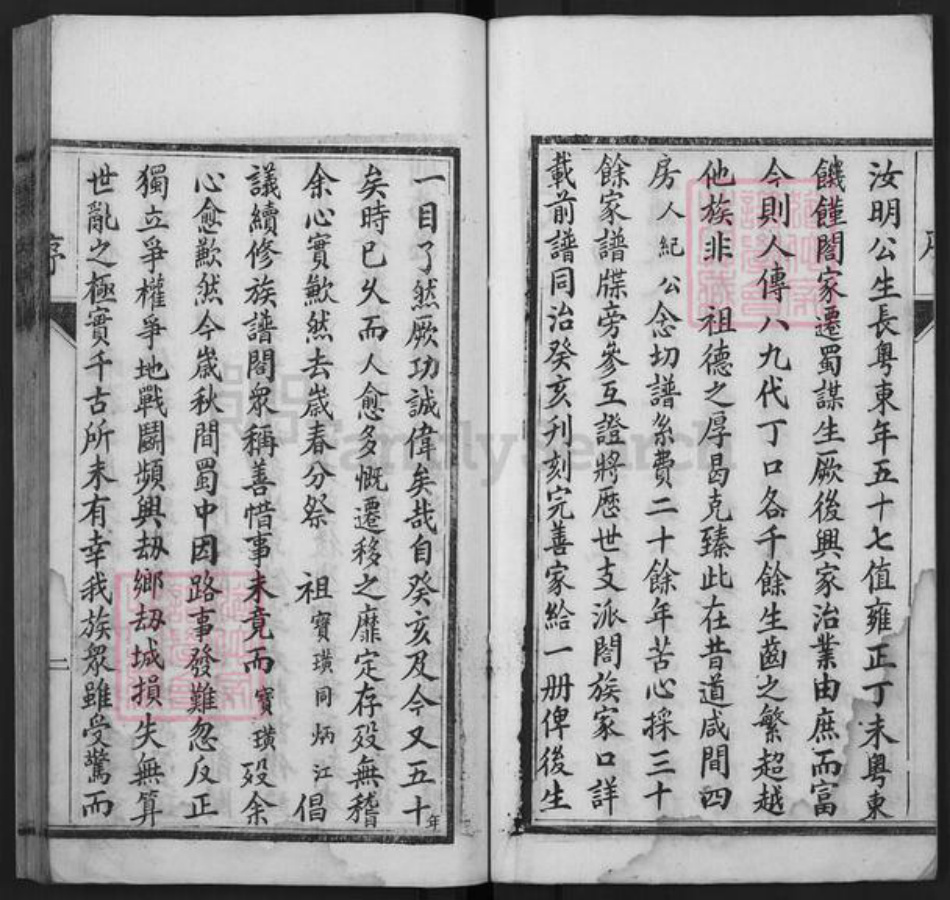 汝明公生長粵東年五十七值雍正丁未粵東
饑饉閤家遷蜀謀生厥後興家治業由庶而富
今則人傳八九代丁口各千餘生齒之繁超越
他族非 祖德之厚曷克臻此在昔道咸間四
房人紀公念切譜系費二十餘年苦心採三十
餘家譜牒旁參互證將歷世支派閤族家口詳
載前譜同治癸亥刊刻完善家給一册俾後生
一目了然厥功誠偉矣哉自癸亥及今又五十年
矣時已久而人愈多慨遷移之靡定存歿無稽
余心實歉然去歲春分祭 祖寶璜同炳江倡
議續修族譜閤眾稱善惜事未竟而寶璜歿余
心愈歉然今歲秋間蜀中因路事發難忽反正
獨立爭權爭地戰鬭頻興刼鄉刼城損失無算
世亂之極實千古所未有幸我族眾雖受驚而
序
二
FamilySearch